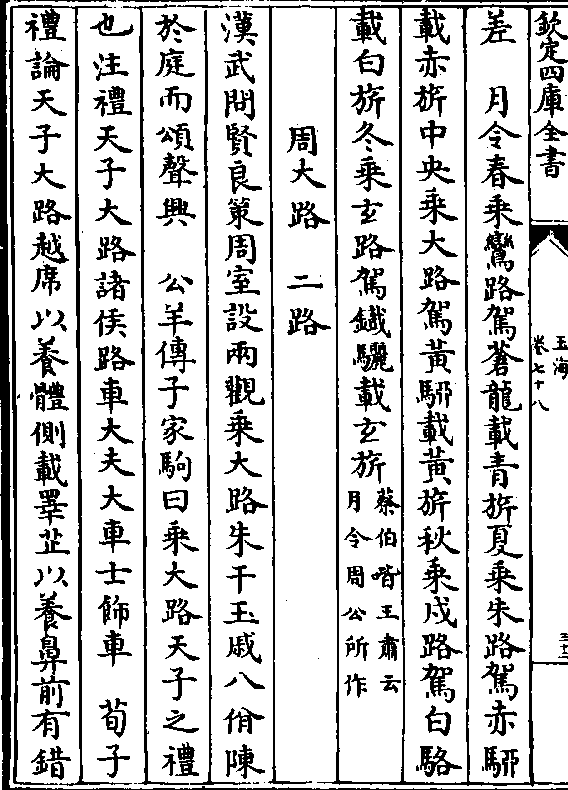 欽定四庫全書
玉海
卷七十八
差　月令春乘鸞路駕蒼龍載青旂夏乘朱路駕赤駵
載赤旂中央乘大路駕黃駵載黃旂秋乘戍路駕白駱
載白旂冬乘玄路駕鐵驪載玄旂蔡伯喈王肅云
月令周公所作
周大路　二路
漢武問賢良策周室設兩觀乘大路朱干玉戚八佾陳
於庭而頌聲興　公羊傳子家駒曰乘大路天子之禮
也注禮天子大路諸侯路車大夫大車士飾車　荀子
禮論天子大路越席以養體側載睪芷以養鼻前有錯